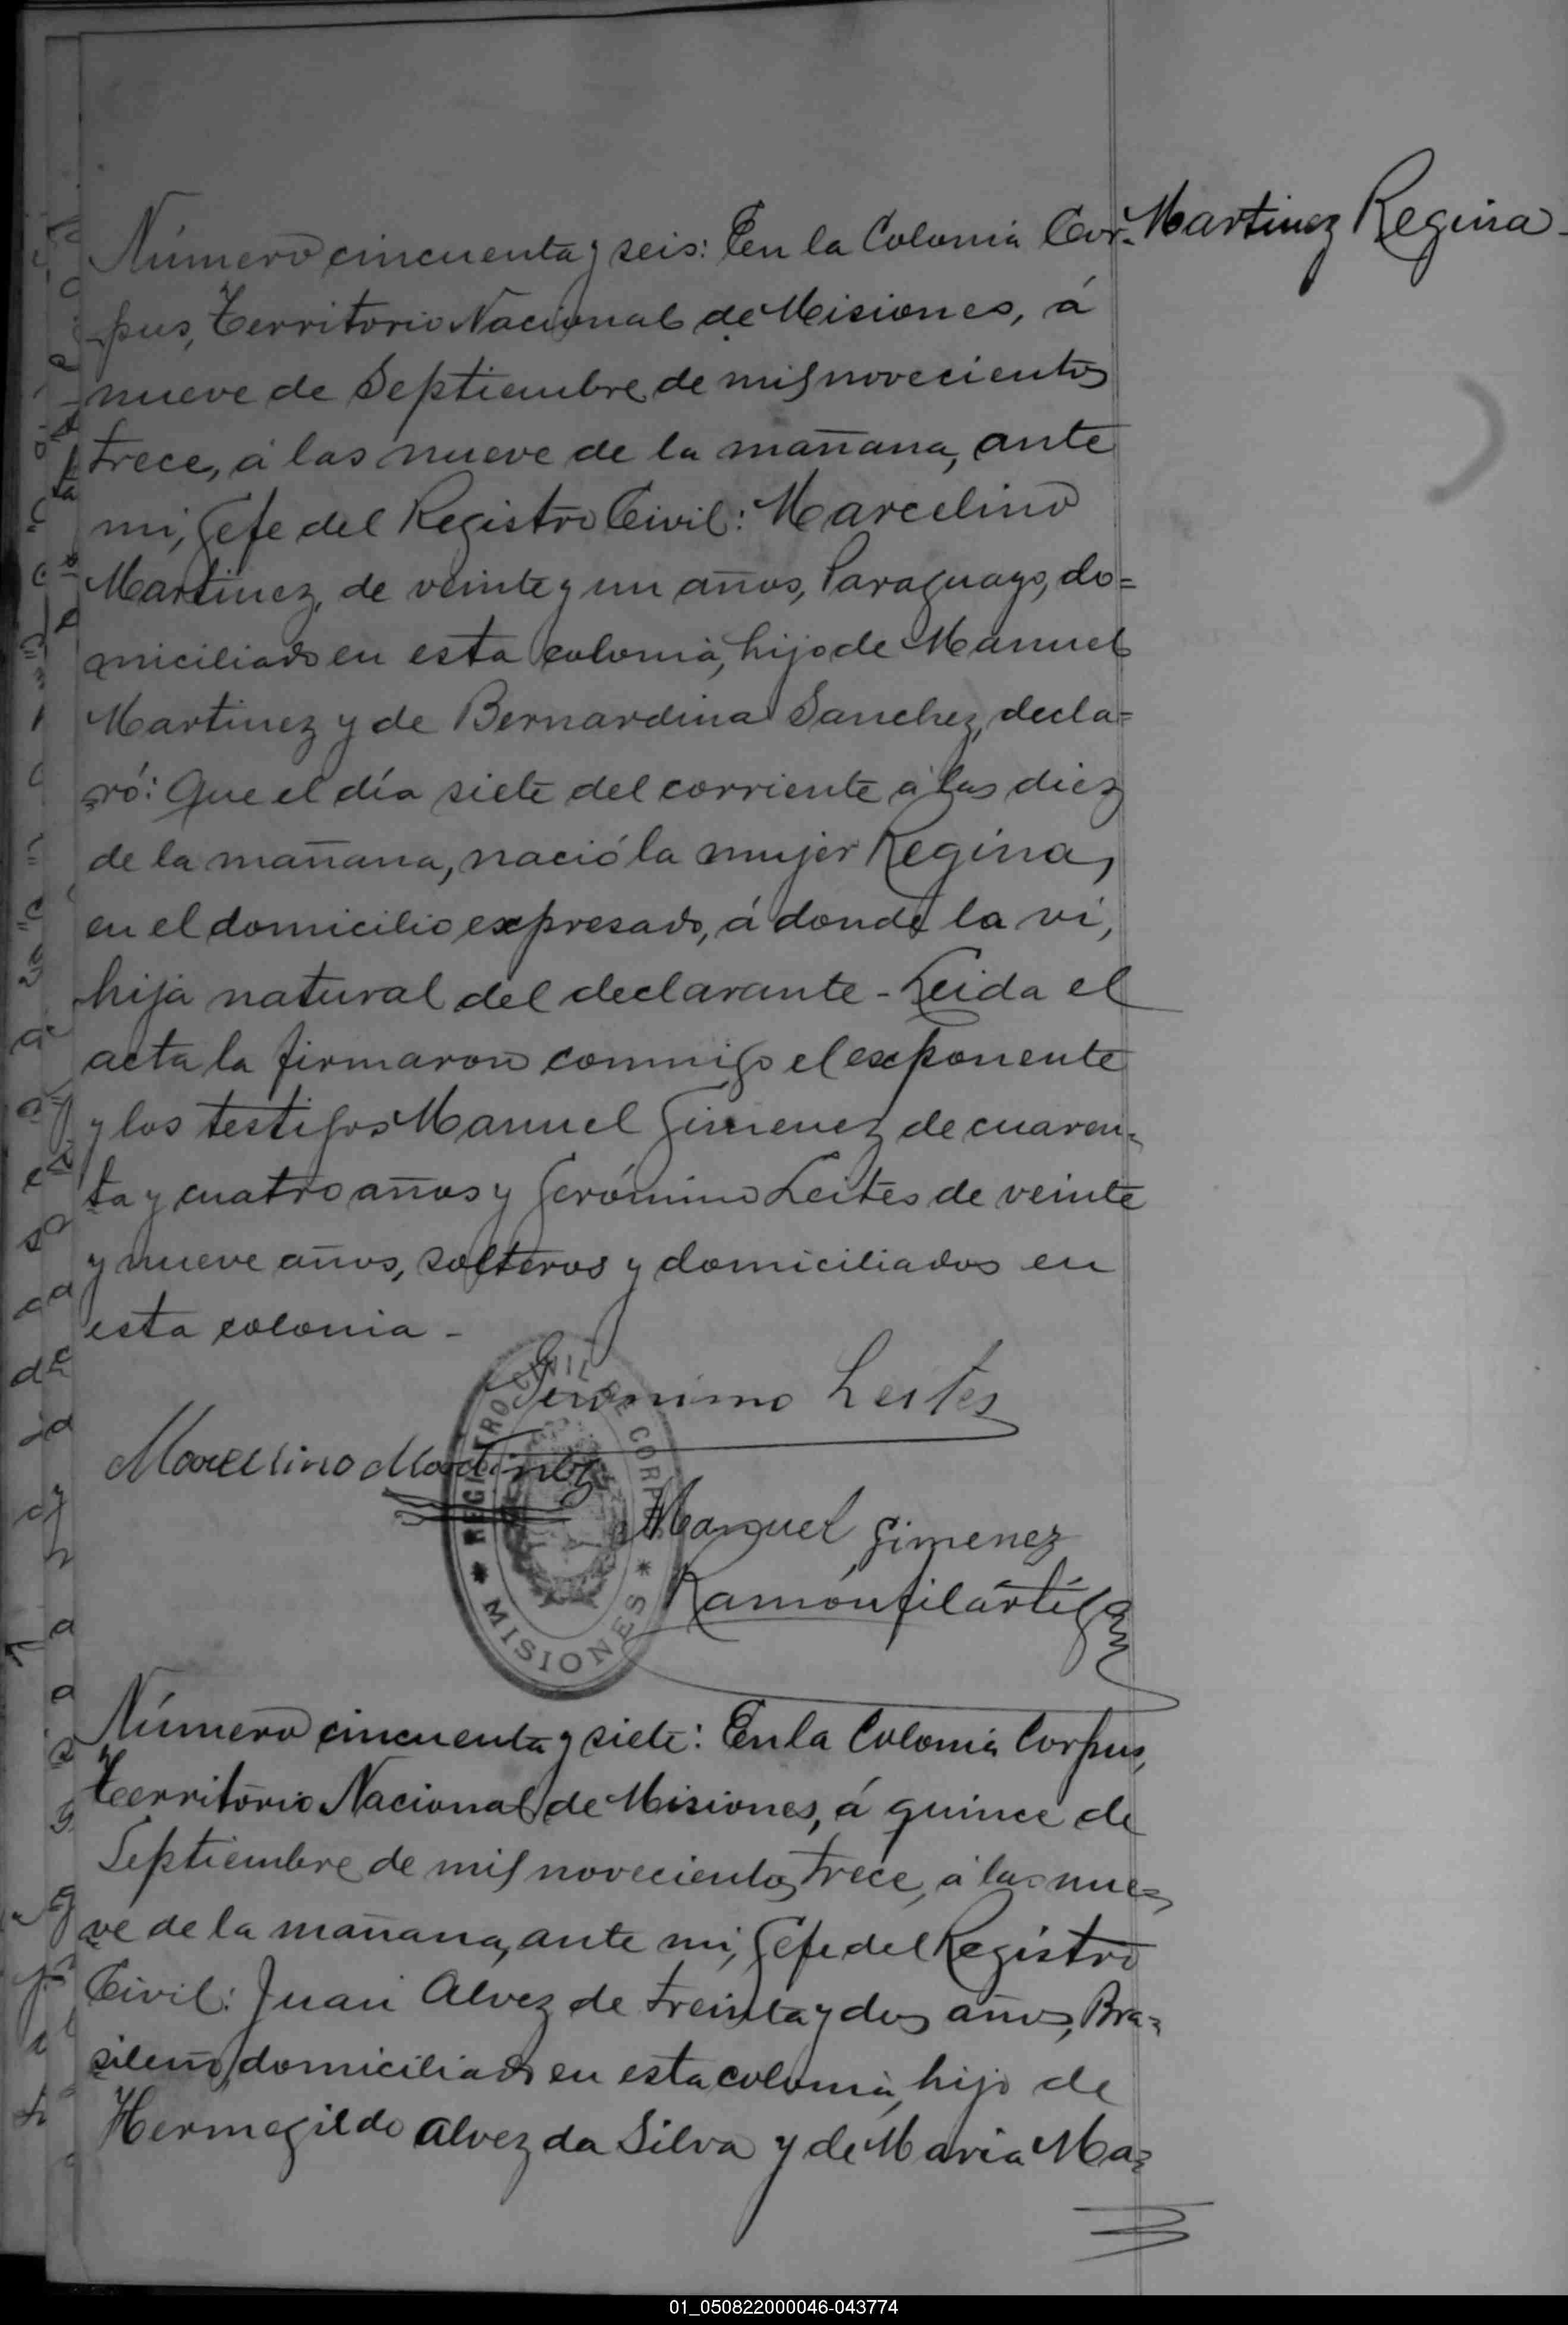 Martinez Regina
Número cincuenta y seis: En la Colonia Cor-
pus, Territorio Nacional de Misiones, á
nueve de Septiembre de mil novecientos
trece, á las nueve de la mañana, ante
mi, Gefe del Registro Civil: Marcelino
Martinez, de veinte y un años, Paraguayo, do=
miciliado en esta colonia, hijo de Manuel
Martinez y de Bernardina Sanchez, decla=
ró: Que el día siete del corriente á las diez
de la mañana, nació la mujer Regina,
en el domicilio expresado, á donde la ví,
hija natural del declarante - Leida el
acta la firmaron conmigo el exponente
y los testigos Manuel Gimenez de cuaren=
ta y cuatro años y Gerónimo Leites de veinte
y nueve años, solteros y domiciliados en
esta colonia -
Geronimo Leites
Marcelino Martinez
REGISTRO CIVIL DE CORPUS
* MISIONES *
Manuel Gimenez
Ramón Filártiga
Número cincuenta y siete: En la Colonia Corpus,
Territorio Nacional de Misiones, á quince de
Septiembre de mil novecientos trece, á las nue=
ve de la mañana, ante mi, Gefe del Registro
Civil: Juan Alvez de treinta y dos años, Bra=
sileño, domiciliado en esta colonia, hijo de
Hermegildo Alvez da Silva y de Maria Ma=
01_050822000046-043774